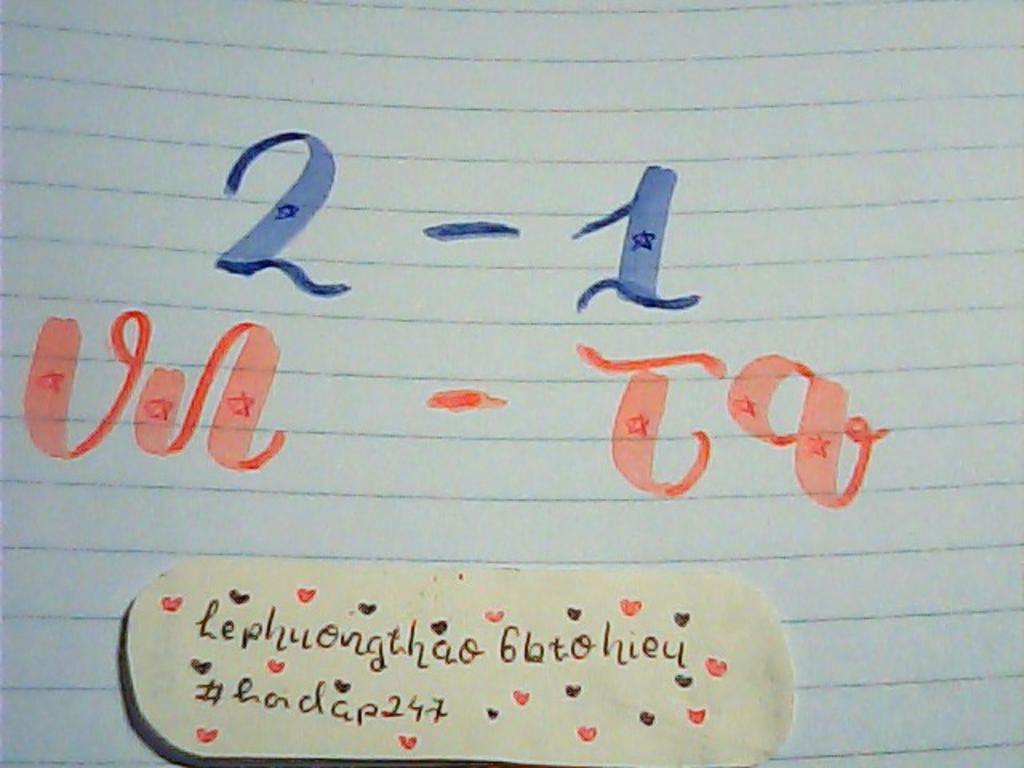 2 - 1
vn - tq
lephuongthao 6btohieu
#hoidap247